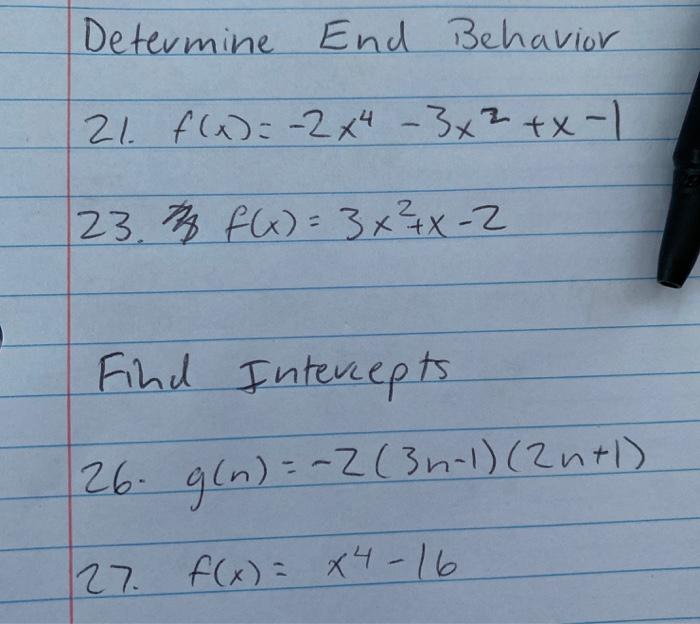 Determine End Behavior
21. f(x) = -2x⁴ - 3x² + x - 1
23. f(x) = 3x² + x - 2
Find Intercepts
26. g(n) = -2(3n-1)(2n+1)
27. f(x) = x⁴ - 16